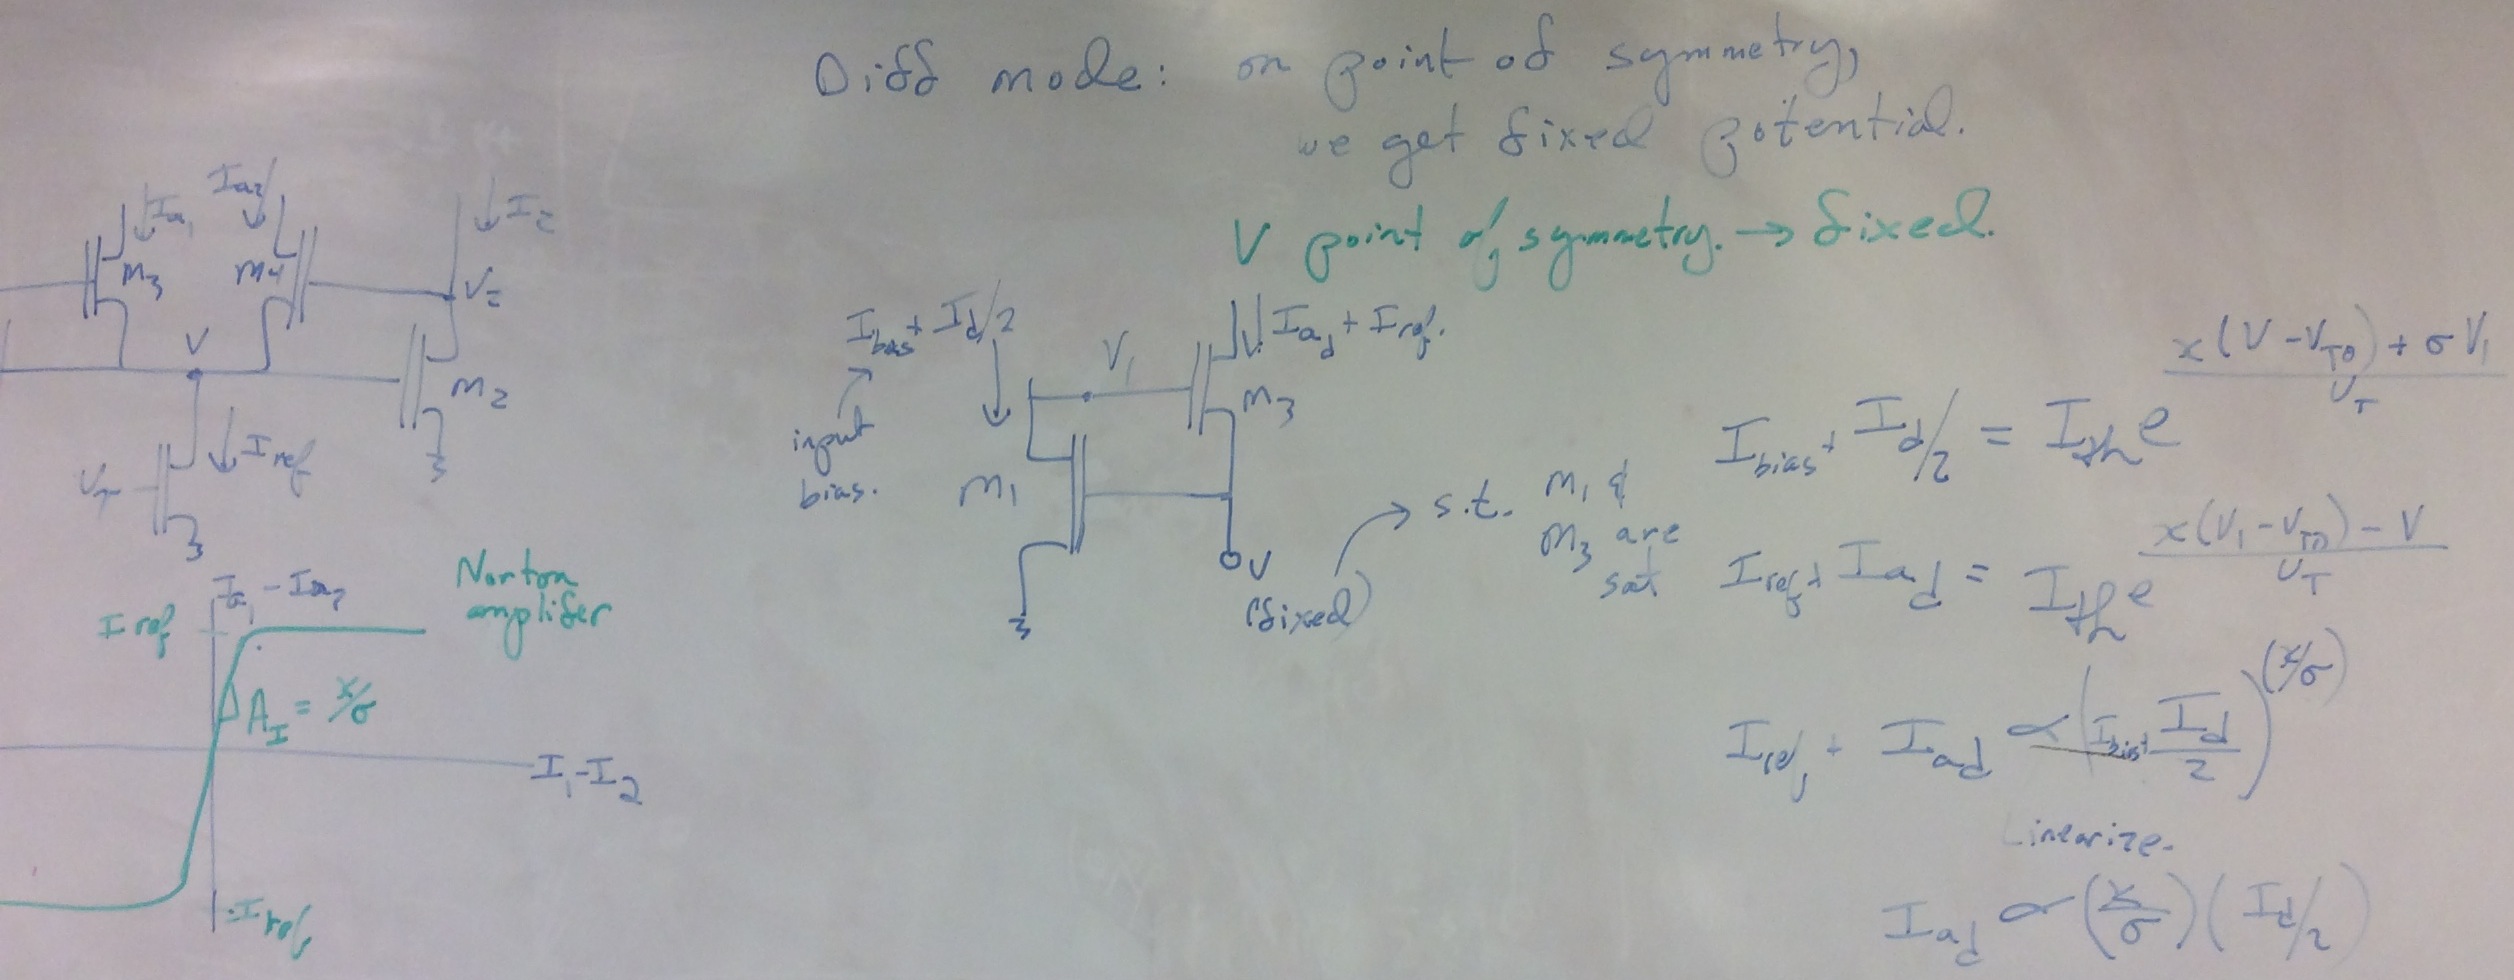 Diff mode: on point of symmetry,
we get fixed potential.
V point of symmetry. → fixed.
Ia1
Ia2
I2
M3
M4
V2
V
M2
Iref
VT
Ia1 - Ia2
Iref
Norton
amplifer
A_I = x/σ
I1-I2
-Iref
Ibias + Id/2
input
bias.
V1
Iad + Iref.
M3
M1
V
(fixed)
s.t. M1 &
M3 are
sat
Ibias + Id/2 = Ith e^((x(V - VT0) + σV1)/UT)
Iref + Iad = Ith e^((x(V1 - VT0) - V)/UT)
Iref + Iad ∝ (Ibias + Id/2)^(x/σ)
Linearize.
Iad ∝ (x/σ)(Id/2)